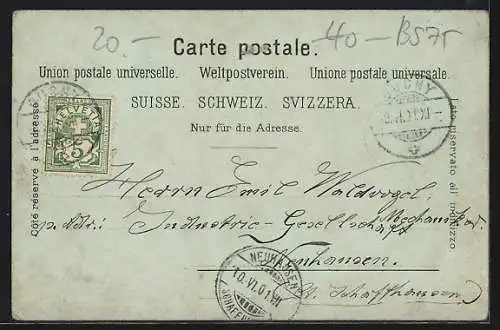 20.-
40 - BS75
Carte postale.
Union postale universelle. Weltpostverein. Unione postale universale.
SUISSE. SCHWEIZ. SVIZZERA.
Nur für die Adresse.
Côté réservé à l'adresse
Lato riservato all' indirizzo
HELVETIA
5
OUCHY
Herrn Emil Waldvogel,
Mechaniker
Industrie-Gesellschaft
Neuhausen.
Schaffhausen
NEUHAUSEN
10.VI.01.VII